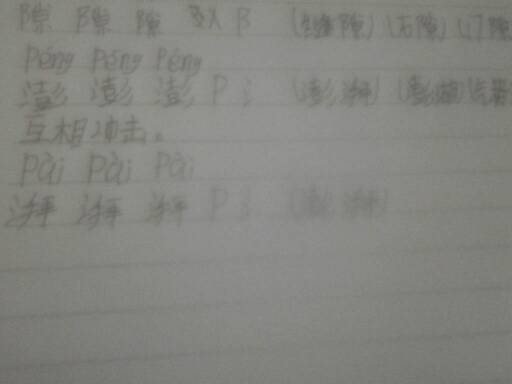 隙 隙 隙 (缝隙) (石隙) (门隙
péng péng péng
澎 澎 澎 P 氵 (澎湃) (澎
互相冲击。
pài pài pài
湃 湃 湃 P 氵 (澎湃)